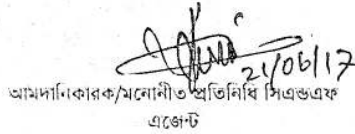 21/06/17
আমদানিকারক/মনোনীত প্রতিনিধি সিএন্ডএফ
এজেন্ট